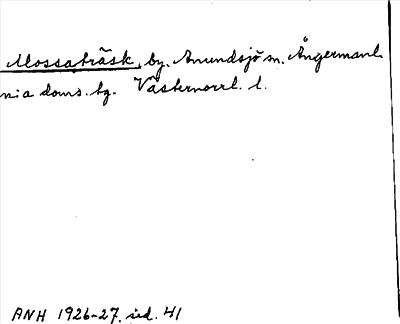 Mossaträsk, by. Anundsjö sn. Ångermanl.
n:a doms. sg. Västernorrl. l.
ANH 1926-27, sid. 41